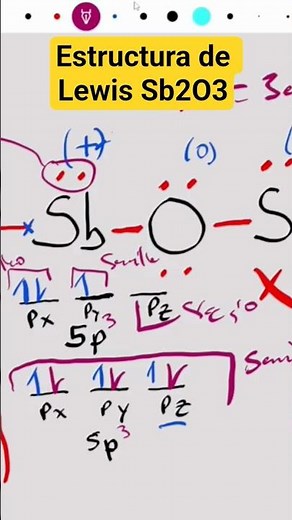 Estructura de
Lewis Sb2O3
= 3
(+) (0)
Sb — O — S
Px Py Pz
5p³
Px Py Pz
5p³